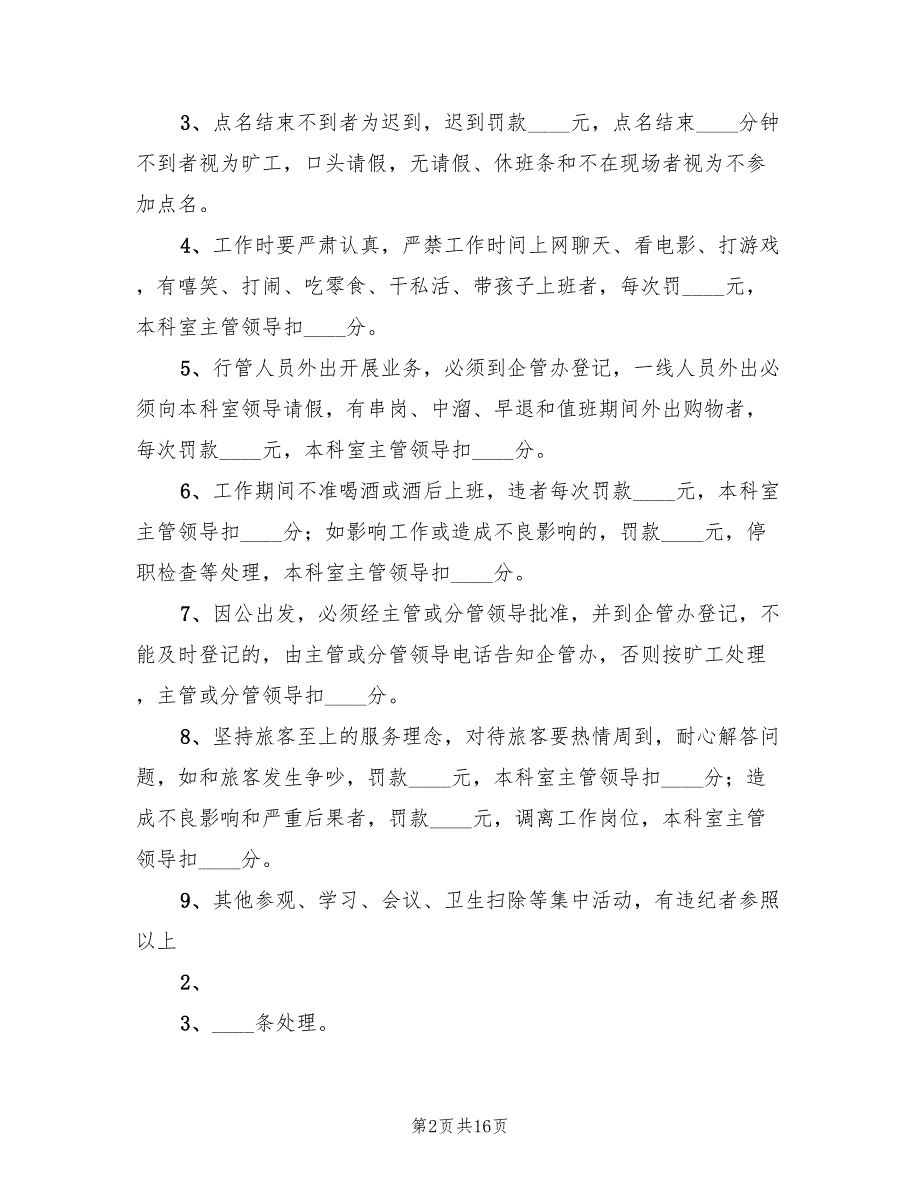 3、点名结束不到者为迟到，迟到罚款____元，点名结束____分钟
不到者视为旷工，口头请假，无请假、休班条和不在现场者视为不参
加点名。
4、工作时要严肃认真，严禁工作时间上网聊天、看电影、打游戏
，有嘻笑、打闹、吃零食、干私活、带孩子上班者，每次罚____元，
本科室主管领导扣____分。
5、行管人员外出开展业务，必须到企管办登记，一线人员外出必
须向本科室领导请假，有串岗、中溜、早退和值班期间外出购物者，
每次罚款____元，本科室主管领导扣____分。
6、工作期间不准喝酒或酒后上班，违者每次罚款____元，本科室
主管领导扣____分；如影响工作或造成不良影响的，罚款____元，停
职检查等处理，本科室主管领导扣____分。
7、因公出发，必须经主管或分管领导批准，并到企管办登记，不
能及时登记的，由主管或分管领导电话告知企管办，否则按旷工处理
，主管或分管领导扣____分。
8、坚持旅客至上的服务理念，对待旅客要热情周到，耐心解答问
题，如和旅客发生争吵，罚款____元，本科室主管领导扣____分；造
成不良影响和严重后果者，罚款____元，调离工作岗位，本科室主管
领导扣____分。
9、其他参观、学习、会议、卫生扫除等集中活动，有违纪者参照
以上
2、
3、____条处理。
第2页共16页